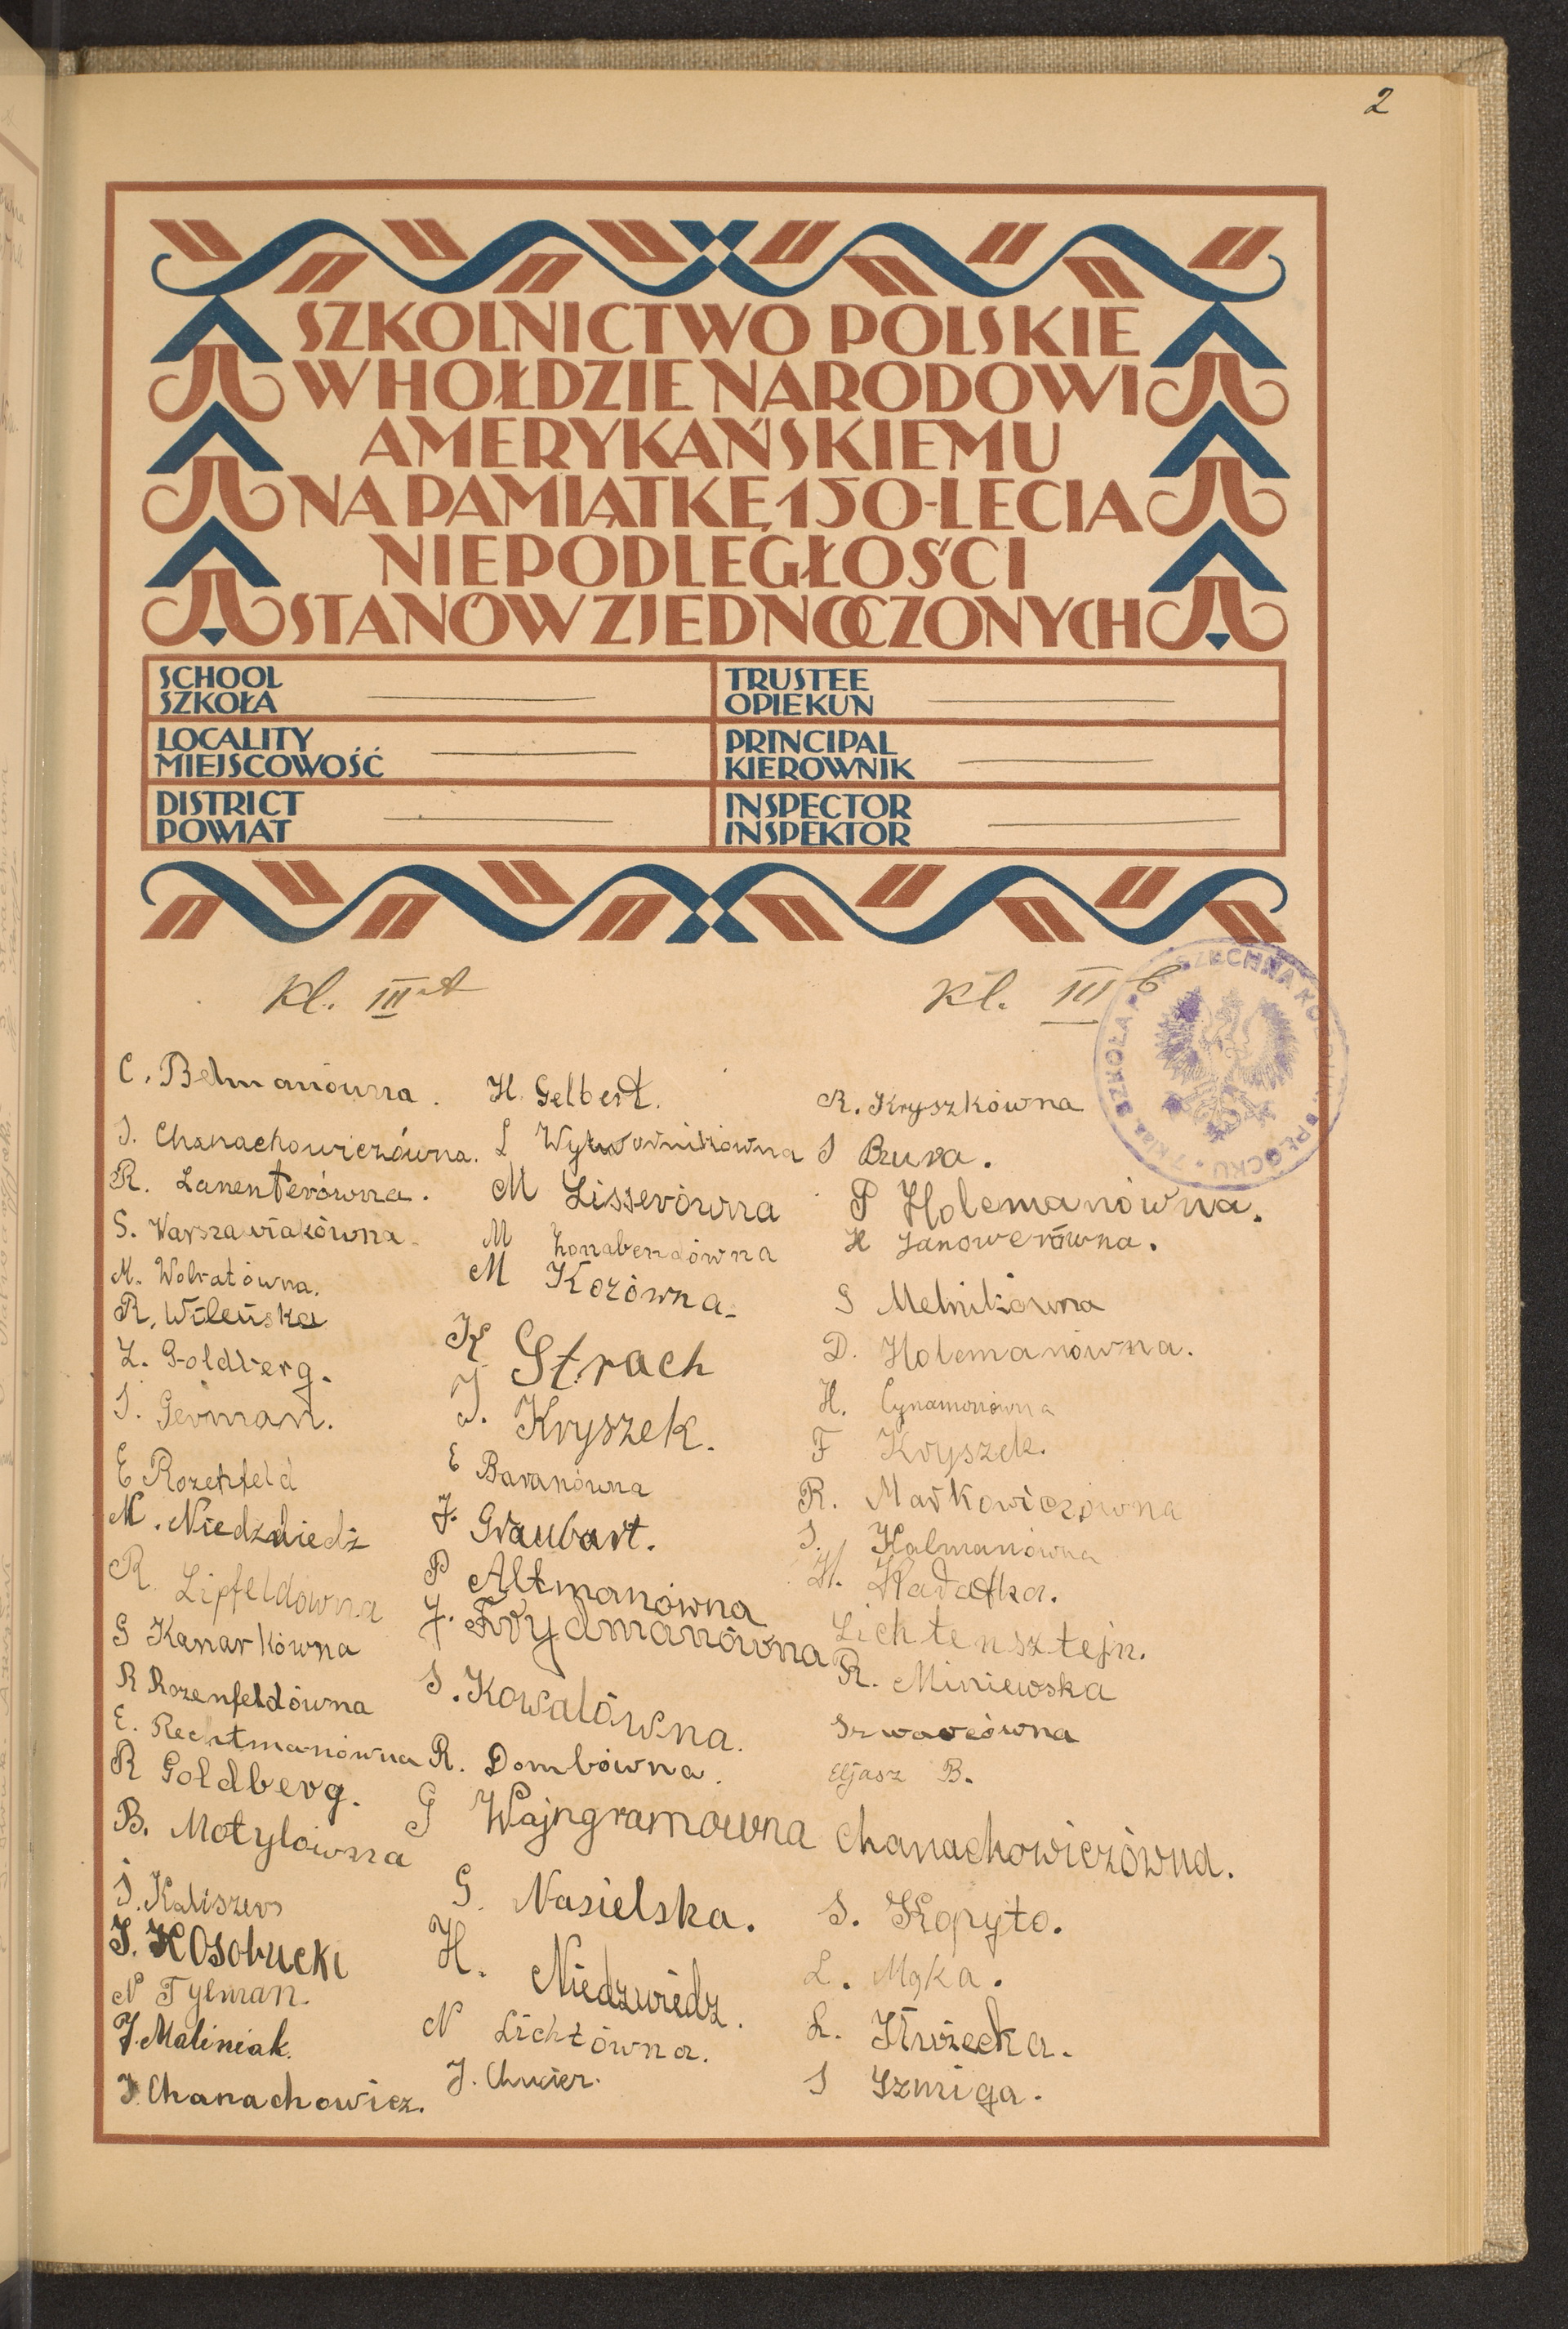 2
SZKOLNICTWO POLSKIE
W HOŁDZIE NARODOWI
AMERYKAŃSKIEMU
NA PAMIĄTKĘ 150-LECIA
NIEPODLEGŁOŚCI
STANÓW ZJEDNOCZONYCH
SCHOOL
SZKOŁA
TRUSTEE
OPIEKUN
LOCALITY
MIEJSCOWOŚĆ
PRINCIPAL
KIEROWNIK
DISTRICT
POWIAT
INSPECTOR
INSPEKTOR
kl. III A
C. Belmanówna.
I. Chanachowiczówna.
R. Lanenterówna.
S. Warszawiakówna
M. Wolratówna.
R. Wileńska
Z. Goldberg.
I. German.
E Rozenfeld
M. Niedzwiedź
R. Lipfeldówna
G Kanarkówna
R Rozenfeldówna
E. Rechtmanówna
R Goldberg.
B. Motylówna
I. Kaliszer
I. Kosobucki
N Tylman.
J. Maliniak.
I. Chanachowicz.
H. Gelbert.
M Lisserówna
M
M Kozówna
K Strach
J. Kryszek.
E Baranówna
J. Graubart.
P Altmanówna
J. Frydmanówna
S. Kowalówna.
R. Dombówna.
G Wajngramowna
G. Nasielska.
H. Niedzwiedz.
N Lichtówna.
J. Chucier.
kl. III b
SZKOŁA POWSZECHNA W PŁOCKU
R. Kryszkówna
S Bura.
P Holcmanówna.
H Janowerówna.
S Melnikówna
D. Holcmanówna.
H. Cynamonówna
F Kryszek.
R. Markowiczówna
S. Kalmanówna
H. Kadatka.
Lichtensztejn.
R. Miniewska
Szwarcówna
Eljasz B.
Chanachowiczówna.
S. Kopyto.
L. Mąka.
L. Kwiecka.
S Szmiga.